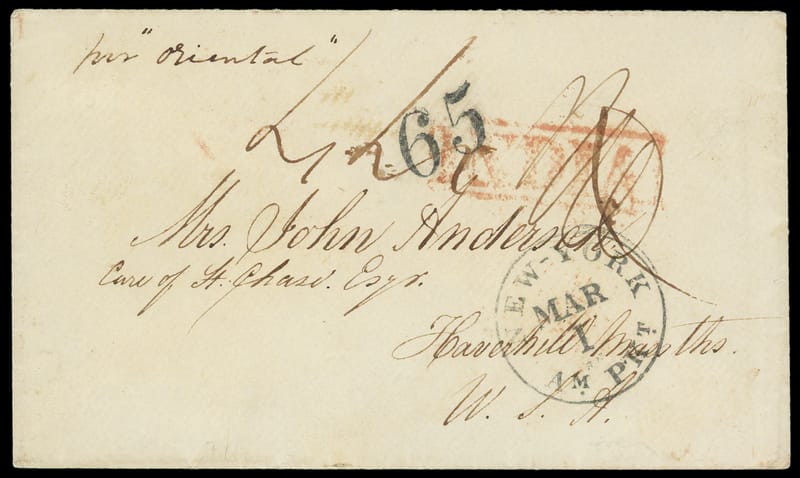 per "Oriental"
65
INDIA
Mrs. John Anderson
Care of H. Chase. Esqr.
NEW-YORK
MAR
1
AM. PKT.
Haverhill
U. S. A.